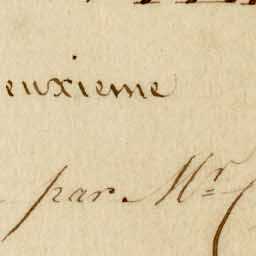 euxieme
par Mr